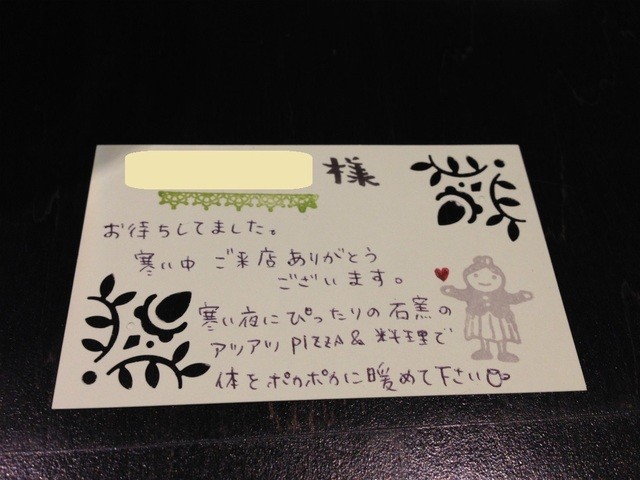 様
お待ちしてました。
寒い中 ご来店ありがとう
ございます。
寒い夜にぴったりの石窯の
アツアツ PIZZA & 料理で
体をポカポカに暖めて下さい